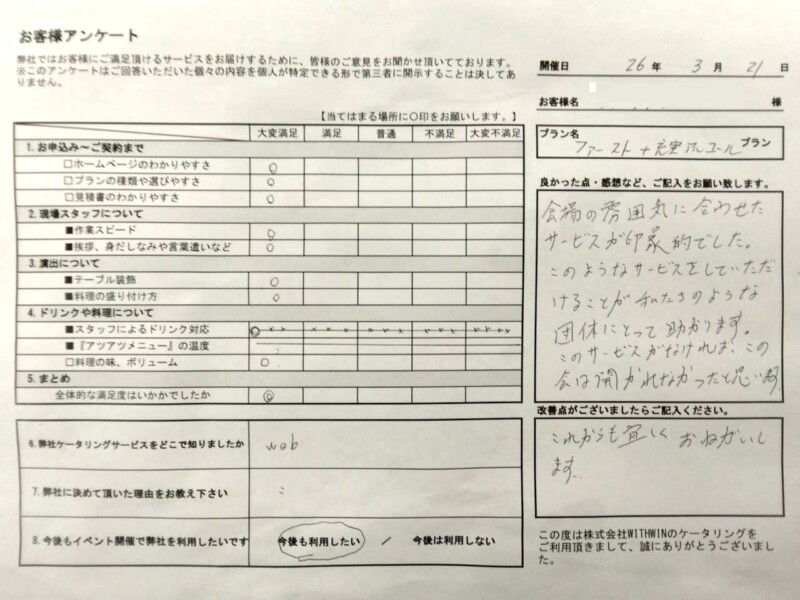 お客様アンケート
弊社ではお客様にご満足頂けるサービスをお届けするために、皆様のご意見をお聞かせ頂いてております。
※このアンケートはご回答いただいた個々の内容を個人が特定できる形で第三者に開示することは決してあ
りません。
【当てはまる場所に〇印をお願いします。】
大変満足 満足 普通 不満足 大変不満足
1. お申込み～ご契約まで
□ホームページのわかりやすさ ○
□プランの種類や選びやすさ ○
□見積書のわかりやすさ ○
2. 現場スタッフについて
■作業スピード ○
■挨拶、身だしなみや言葉遣いなど ○
3. 演出について
■テーブル装飾 ○
■料理の盛り付け方 ○
4. ドリンクや料理について
■スタッフによるドリンク対応 ○
■『アツアツメニュー』の温度
□料理の味、ボリューム ○
5. まとめ
全体的な満足度はいかがでしたか ◎
6. 弊社ケータリングサービスをどこで知りましたか web
7. 弊社に決めて頂いた理由をお教え下さい
8. 今後もイベント開催で弊社を利用したいです 今後も利用したい / 今後は利用しない
開催日 26 年 3 月 21 日
お客様名 様
プラン名
ファースト+充実アルコール プラン
良かった点・感想など、ご記入をお願い致します。
会場の雰囲気に合わせた
サービスが印象的でした。
このようなサービスをしていただ
けることが私たちのような
団体にとって助かります。
このサービスがなければ、この
会は開かれなかったと思います
改善点がございましたらご記入ください。
これからも宜しくおねがいし
ます。
この度は株式会社WITHWINのケータリングを
ご利用頂きまして、誠にありがとうございまし
た。